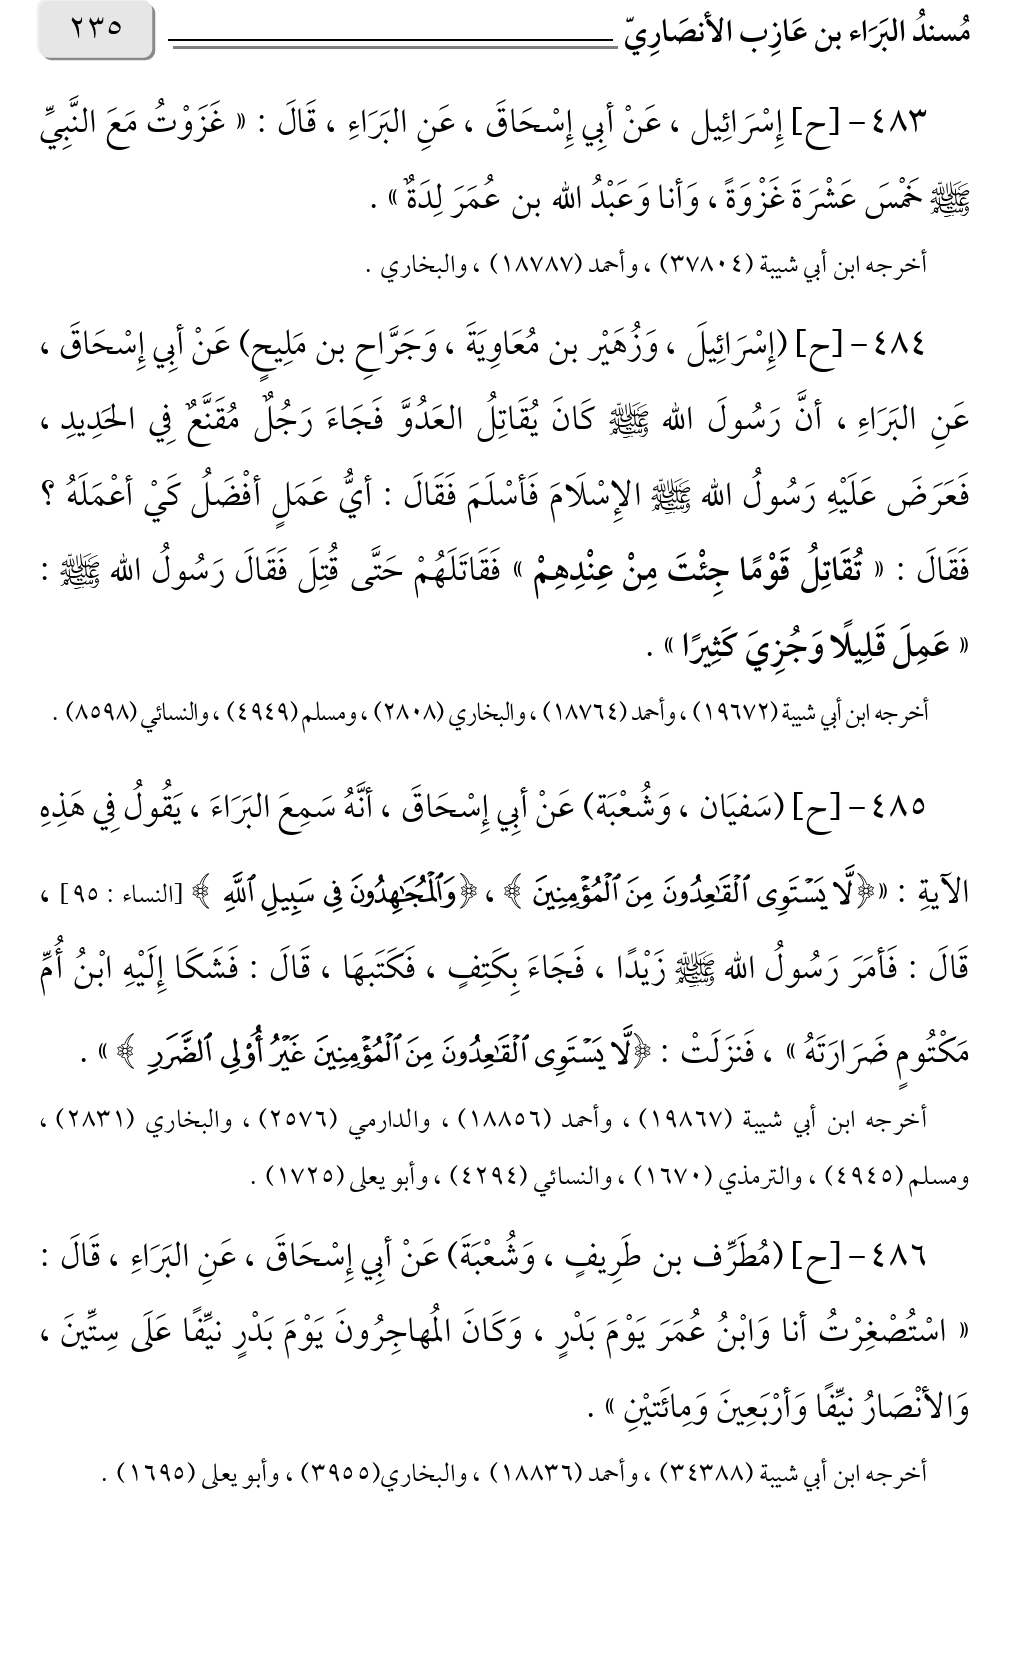 مُسندُ البَرَاء بن عَازِب الأنصَارِيّ ٢٣٥
٤٨٣ – [ح] إِسْرَائِيل ، عَنْ أبِي إِسْحَاقَ ، عَنِ البَرَاءِ ، قَالَ : « غَزَوْتُ مَعَ النَّبِيِّ
ﷺ خَمْسَ عَشْرَةَ غَزْوَةً ، وَأنا وَعَبْدُ الله بن عُمَرَ لِدَةٌ » .
أخرجه ابن أبي شيبة (٣٧٨٠٤) ، وأحمد (١٨٧٨٧) ، والبخاري .
٤٨٤ – [ح] (إِسْرَائِيلَ ، وَزُهَيْر بن مُعَاوِيَةَ ، وَجَرَّاحِ بن مَلِيحٍ) عَنْ أبِي إِسْحَاقَ ،
عَنِ البَرَاءِ ، أنَّ رَسُولَ الله ﷺ كَانَ يُقَاتِلُ العَدُوَّ فَجَاءَ رَجُلٌ مُقَنَّعٌ فِي الحَدِيدِ ،
فَعَرَضَ عَلَيْهِ رَسُولُ الله ﷺ الإِسْلَامَ فَأسْلَمَ فَقَالَ : أيُّ عَمَلٍ أفْضَلُ كَيْ أعْمَلَهُ ؟
فَقَالَ : « تُقَاتِلُ قَوْمًا جِئْتَ مِنْ عِنْدِهِمْ » فَقَاتَلَهُمْ حَتَّى قُتِلَ فَقَالَ رَسُولُ الله ﷺ :
« عَمِلَ قَلِيلًا وَجُزِيَ كَثِيرًا » .
أخرجه ابن أبي شيبة (١٩٦٧٢) ، وأحمد (١٨٧٦٤) ، والبخاري (٢٨٠٨) ، ومسلم (٤٩٤٩) ، والنسائي (٨٥٩٨) .
٤٨٥ – [ح] (سَفيَان ، وَشُعْبَة) عَنْ أبِي إِسْحَاقَ ، أنَّهُ سَمِعَ البَرَاءَ ، يَقُولُ فِي هَذِهِ
الآيةِ : «﴿لَّا يَسْتَوِى ٱلْقَٰعِدُونَ مِنَ ٱلْمُؤْمِنِينَ ﴾ ، ﴿وَٱلْمُجَٰهِدُونَ فِى سَبِيلِ ٱللَّهِ ﴾ [النساء : ٩٥] ،
قَالَ : فَأمَرَ رَسُولُ الله ﷺ زَيْدًا ، فَجَاءَ بِكَتِفٍ ، فَكَتَبهَا ، قَالَ : فَشَكَا إِلَيْهِ ابْنُ أُمِّ
مَكْتُومٍ ضَرَارَتَهُ » ، فَنزَلَتْ : ﴿لَّا يَسْتَوِى ٱلْقَٰعِدُونَ مِنَ ٱلْمُؤْمِنِينَ غَيْرُ أُو۟لِى ٱلضَّرَرِ ﴾ » .
أخرجه ابن أبي شيبة (١٩٨٦٧) ، وأحمد (١٨٨٥٦) ، والدارمي (٢٥٧٦) ، والبخاري (٢٨٣١) ،
ومسلم (٤٩٤٥) ، والترمذي (١٦٧٠) ، والنسائي (٤٢٩٤) ، وأبو يعلى (١٧٢٥) .
٤٨٦ – [ح] (مُطَرِّف بن طَرِيفٍ ، وَشُعْبَةَ) عَنْ أبِي إِسْحَاقَ ، عَنِ البَرَاءِ ، قَالَ :
« اسْتُصْغِرْتُ أنا وَابْنُ عُمَرَ يَوْمَ بَدْرٍ ، وَكَانَ المُهاجِرُونَ يَوْمَ بَدْرٍ نيِّفًا عَلَى سِتِّينَ ،
وَالأنْصَارُ نيِّفًا وَأرْبَعِينَ وَمِائَتيْنِ » .
أخرجه ابن أبي شيبة (٣٤٣٨٨) ، وأحمد (١٨٨٣٦) ، والبخاري(٣٩٥٥) ، وأبو يعلى (١٦٩٥) .